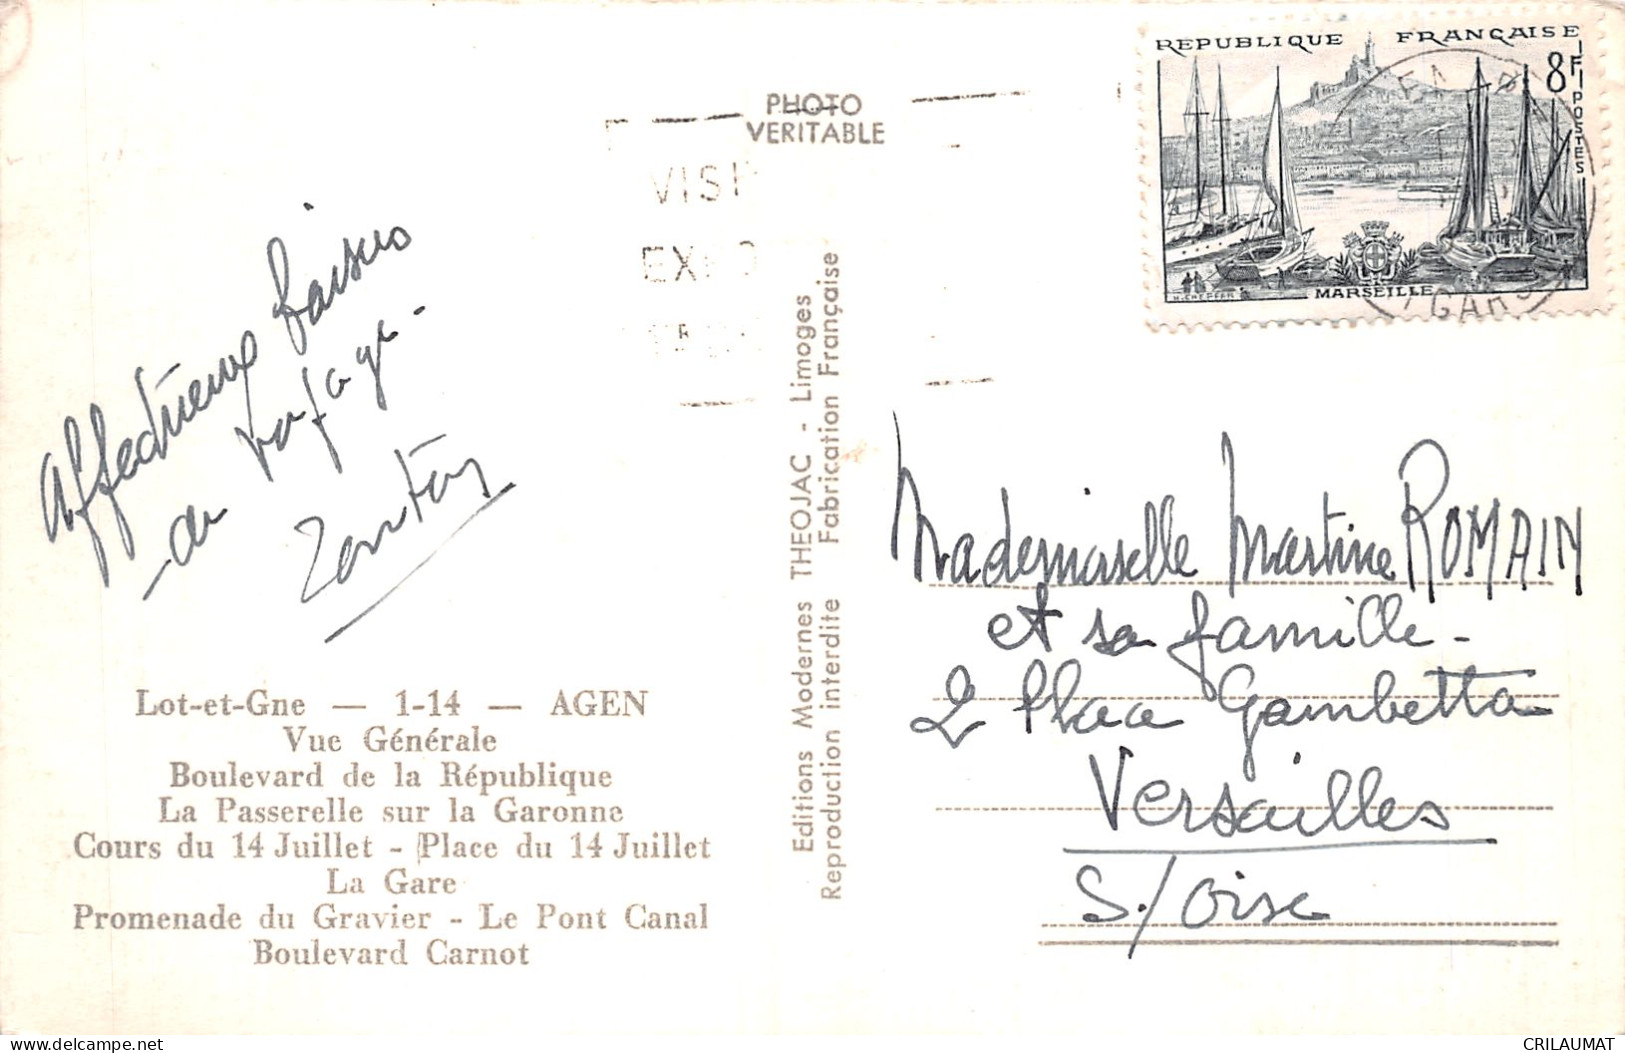 REPUBLIQUE FRANÇAISE
8F
POSTES
H. CHEFFER
MARSEILLE
GARO
PHOTO
VERITABLE
VISI
Affectueux baisers
de
Lot-et-Gne — 1-14 — AGEN
Vue Générale
Boulevard de la République
La Passerelle sur la Garonne
Cours du 14 Juillet - Place du 14 Juillet
La Gare
Promenade du Gravier - Le Pont Canal
Boulevard Carnot
Editions Modernes THEOJAC - Limoges
Reproduction interdite Fabrication Française
Mademoiselle Martine ROMAIN
et sa famille -
2 Place Gambetta
Versailles
S/Oise
CRILAUMAT